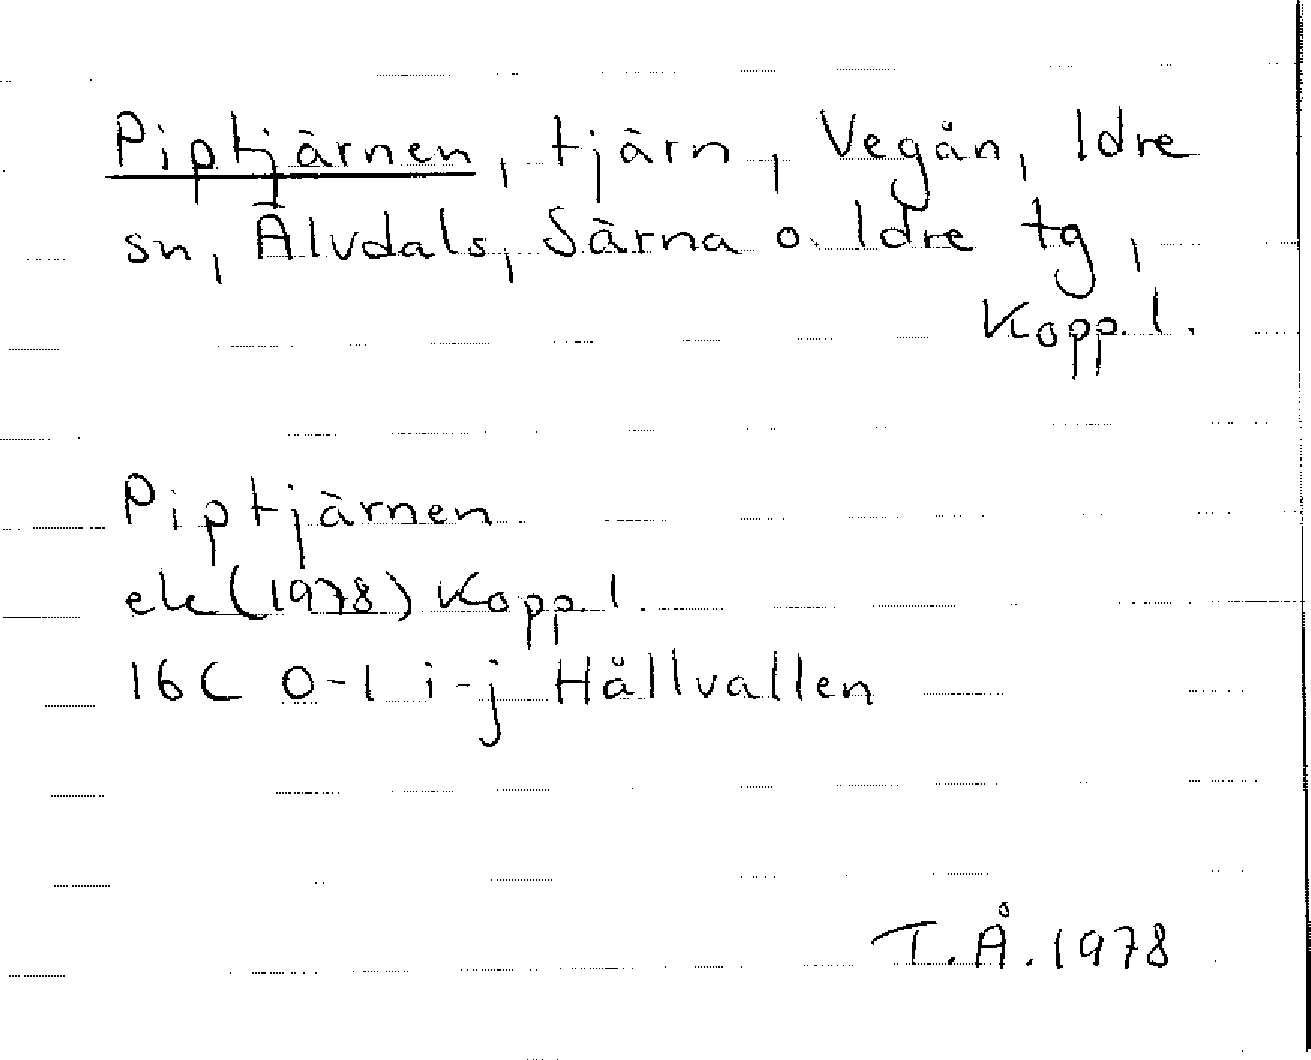 Piptjärnen, tjärn, Vegån, Idre
sn, Älvdals, Särna o. Idre tg,
Kopp. l.
Piptjärnen
ek (1978) Kopp. l.
16C 0-1 i-j Hållvallen
T.Å. 1978